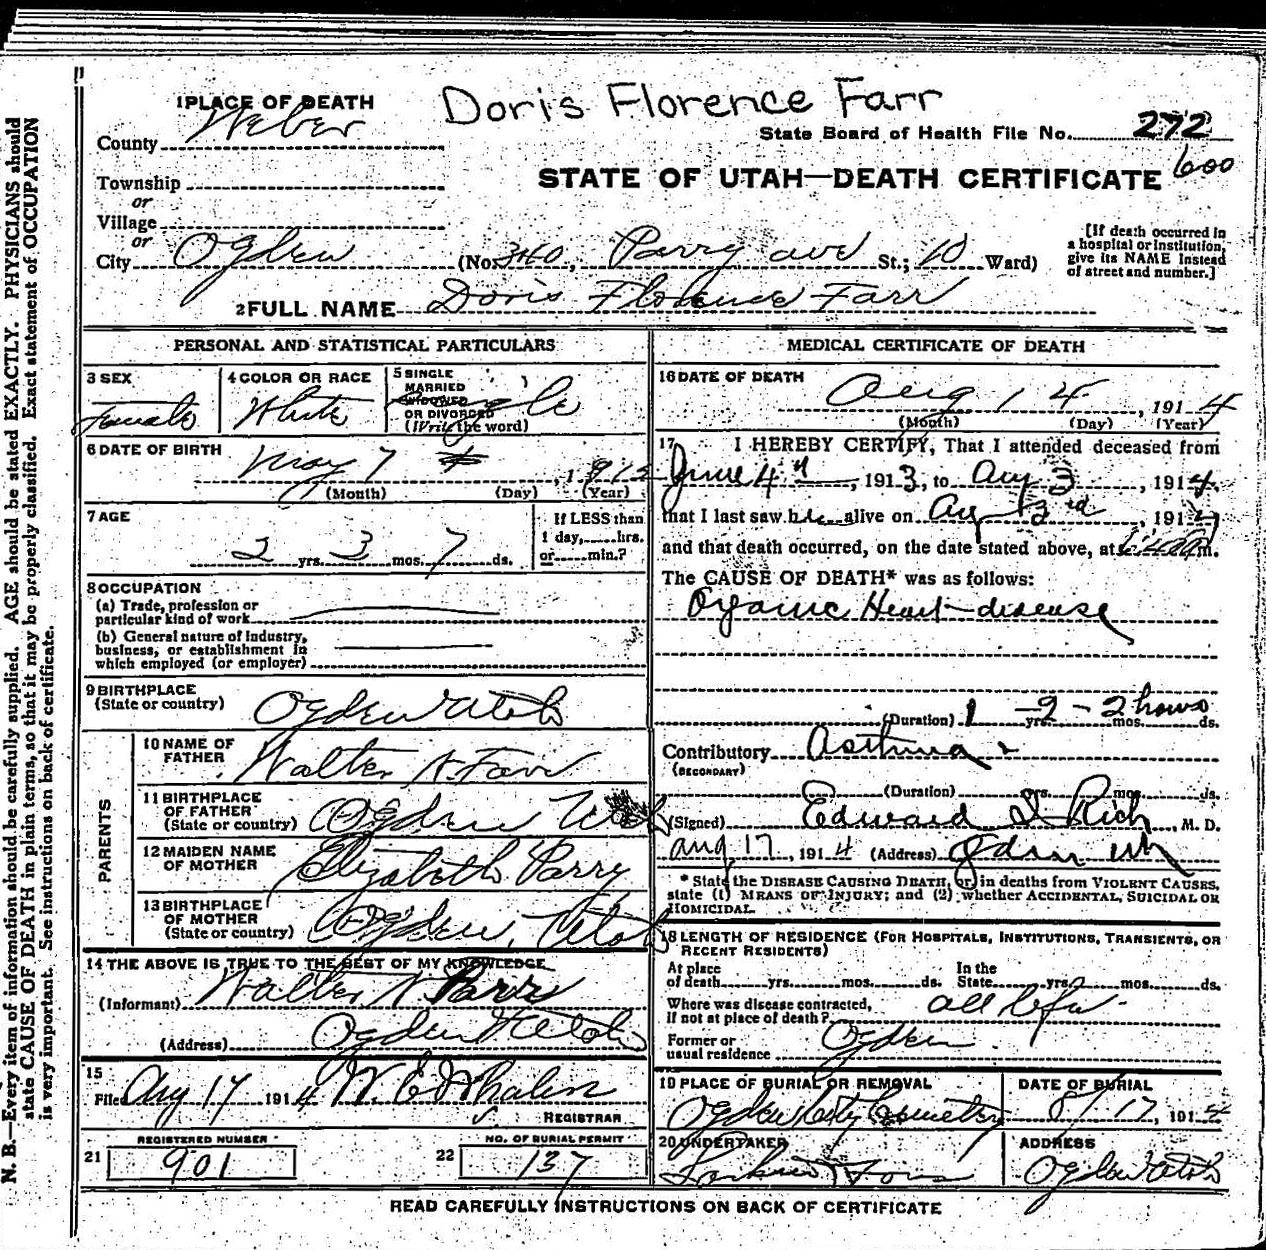 1 PLACE OF DEATH
Doris Florence Farr
County Weber
State Board of Health File No. 272
600
STATE OF UTAH—DEATH CERTIFICATE
Township
or
Village
or
City Ogden (No. 3460, Parry ave St.; 10 Ward)
[If death occurred in
a hospital or institution,
give its NAME instead
of street and number.]
2 FULL NAME Doris Florence Farr
PERSONAL AND STATISTICAL PARTICULARS
3 SEX
Female
4 COLOR OR RACE
White
5 SINGLE
MARRIED
WIDOWED
OR DIVORCED
(Write the word)
Single
6 DATE OF BIRTH
May 7, 1912
(Month) (Day) (Year)
7 AGE
2 yrs. 3 mos. 7 ds.
If LESS than
1 day,......hrs.
or......min.?
8 OCCUPATION
(a) Trade, profession or
particular kind of work
(b) General nature of industry,
business, or establishment in
which employed (or employer)
9 BIRTHPLACE
(State or country) Ogden Utah
PARENTS
10 NAME OF
FATHER
Walter N. Farr
11 BIRTHPLACE
OF FATHER
(State or country) Ogden Utah
12 MAIDEN NAME
OF MOTHER
Elizabeth Parry
13 BIRTHPLACE
OF MOTHER
(State or country) Ogden, Utah
14 THE ABOVE IS TRUE TO THE BEST OF MY KNOWLEDGE
(Informant) Walter N Farr
(Address) Ogden Utah
15
Filed Aug 17 1914 W. E. Whalen
REGISTRAR
REGISTERED NUMBER
21 901
NO. OF BURIAL PERMIT
22 137
MEDICAL CERTIFICATE OF DEATH
16 DATE OF DEATH
Aug 14, 1914
(Month) (Day) (Year)
17 I HEREBY CERTIFY, That I attended deceased from
June 4th, 1913, to Aug 3, 1914,
that I last saw her alive on Aug 3rd, 1914
and that death occurred, on the date stated above, at m.
The CAUSE OF DEATH* was as follows:
Organic Heart disease
(Duration) 1 yrs. 2 mos. 2 hours ds.
Contributory Asthma
(SECONDARY)
(Duration) yrs. mos. ds.
(Signed) Edward I Rich, M. D.
Aug 17, 1914 (Address) Ogden Utah
* State the DISEASE CAUSING DEATH, or, in deaths from VIOLENT CAUSES,
state (1) MEANS OF INJURY; and (2) whether ACCIDENTAL, SUICIDAL OR
HOMICIDAL.
18 LENGTH OF RESIDENCE (FOR HOSPITALS, INSTITUTIONS, TRANSIENTS, OR
RECENT RESIDENTS)
At place
of death......yrs......mos......ds.
In the
State......yrs......mos......ds.
all life
Where was disease contracted,
if not at place of death?
Former or
usual residence
Ogden
19 PLACE OF BURIAL OR REMOVAL
Ogden City Cemetery
DATE OF BURIAL
8/17, 1914
20 UNDERTAKER
Larkin & Sons
ADDRESS
Ogden Utah
READ CAREFULLY INSTRUCTIONS ON BACK OF CERTIFICATE
N. B.—Every item of information should be carefully supplied. AGE should be stated EXACTLY. PHYSICIANS should
state CAUSE OF DEATH in plain terms, so that it may be properly classified. Exact statement of OCCUPATION
is very important. See instructions on back of certificate.